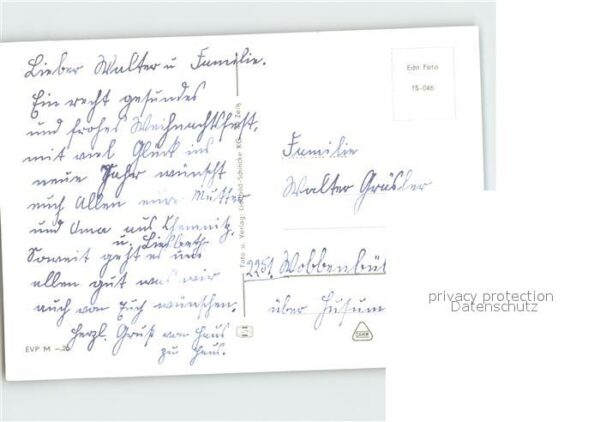 Lieber Walter u Familie.
Ein recht gesundes
und frohes Weihnachtsfest,
mit viel Glück ins
neue Jahr wünscht
euch Allen eure Mutter
und Oma aus Chemnitz.
u. Liesbeth
Soweit geht es uns
allen gut was wir
auch von Euch wünschen.
Herzl. Gruß von Haus
zu Haus.
EVP M –.26
Foto u. Verlag:
Zeitz
Echt Foto
15-046
Familie
Walter Gräsler
2251. Wobbenbül
über Husum
privacy protection
Datenschutz